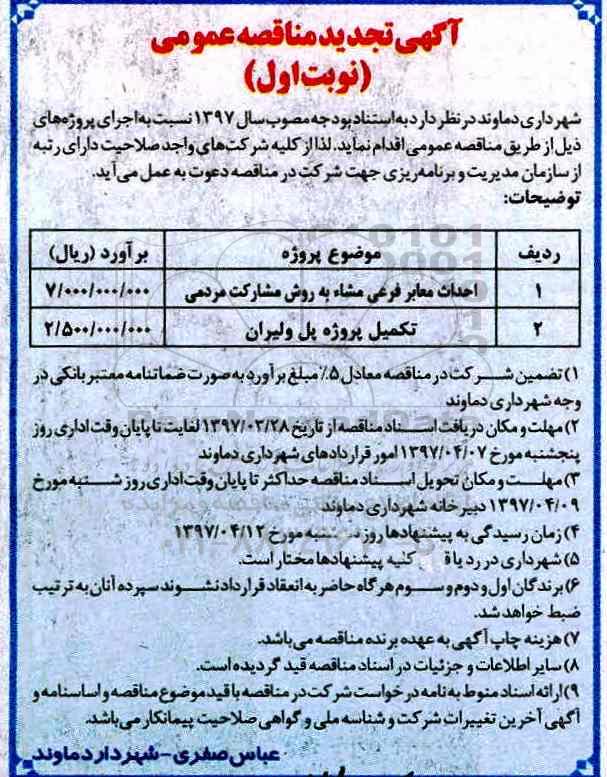 آگهی تجدید مناقصه عمومی
(نوبت اول)
شهرداری دماوند در نظر دارد به استناد بودجه مصوب سال ۱۳۹۷ نسبت به اجرای پروژه‌های
ذیل از طریق مناقصه عمومی اقدام نماید. لذا از کلیه شرکت‌های واجد صلاحیت دارای رتبه
از سازمان مدیریت و برنامه‌ریزی جهت شرکت در مناقصه دعوت به عمل می‌آید.
توضیحات:
ردیف موضوع پروژه برآورد (ریال)
۱ احداث معابر فرعی مشاء به روش مشارکت مردمی ۷/۰۰۰/۰۰۰/۰۰۰
۲ تکمیل پروژه پل ولیران ۲/۵۰۰/۰۰۰/۰۰۰
۱) تضمین شرکت در مناقصه معادل ۵٪ مبلغ برآورد به صورت ضمانتنامه معتبر بانکی در
وجه شهرداری دماوند
۲) مهلت و مکان دریافت اسناد مناقصه از تاریخ ۱۳۹۷/۰۳/۲۸ لغایت تا پایان وقت اداری روز
پنجشنبه مورخ ۱۳۹۷/۰۴/۰۷ امور قراردادهای شهرداری دماوند
۳) مهلت و مکان تحویل اسناد مناقصه حداکثر تا پایان وقت اداری روز شنبه مورخ
۱۳۹۷/۰۴/۰۹ دبیرخانه شهرداری دماوند
۴) زمان رسیدگی به پیشنهادها روز سه‌شنبه مورخ ۱۳۹۷/۰۴/۱۲
۵) شهرداری در رد یا کلیه پیشنهادها مختار است.
۶) برندگان اول و دوم و سوم هرگاه حاضر به انعقاد قرارداد نشوند سپرده آنان به ترتیب
ضبط خواهد شد.
۷) هزینه چاپ آگهی به عهده برنده مناقصه می‌باشد.
۸) سایر اطلاعات و جزئیات در اسناد مناقصه قید گردیده است.
۹) ارائه اسناد منوط به نامه درخواست شرکت در مناقصه با قید موضوع مناقصه و اساسنامه و
آگهی آخرین تغییرات شرکت و شناسه ملی و گواهی صلاحیت پیمانکار می‌باشد.
عباس صفری - شهردار دماوند